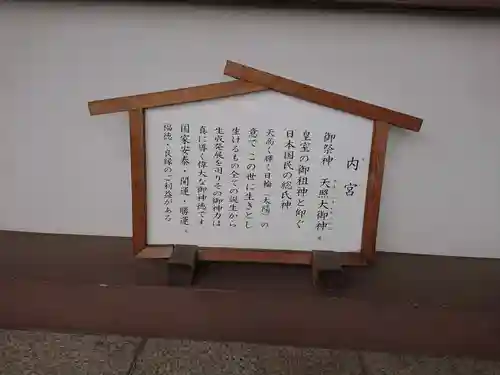 内宮
御祭神 天照大御神
皇室の御祖神と仰ぐ
日本国民の総氏神
天高く輝く日輪（太陽）の
意でこの世に生きとし
生けるもの全ての誕生から
生成発展を司りその御神力は
真に導く偉大な御神徳です
国家安泰・開運・勝運。
福徳・良縁のご利益がある